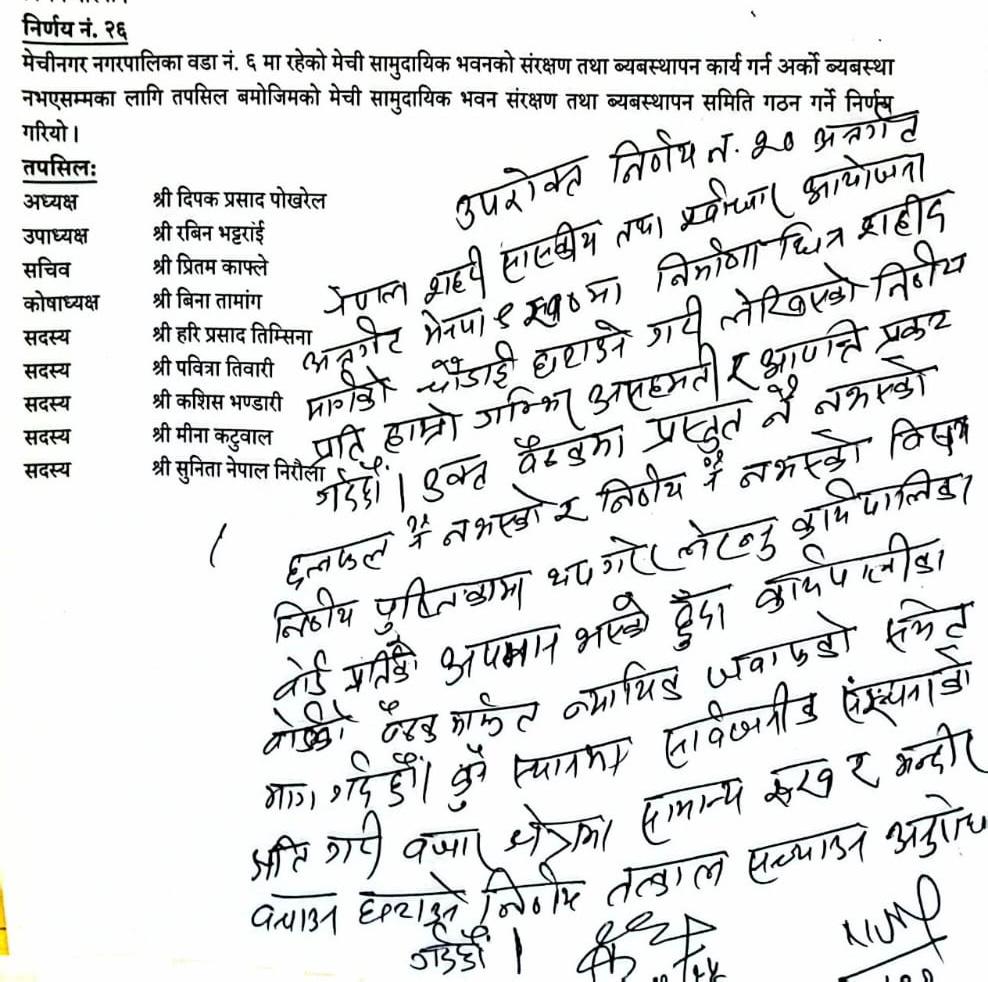 निर्णय नं. २६
मेचीनगर नगरपालिका वडा नं. ६ मा रहेको मेची सामुदायिक भवनको संरक्षण तथा ब्यबस्थापन कार्य गर्न अर्को ब्यबस्था
नभएसम्मका लागि तपसिल बमोजिमको मेची सामुदायिक भवन संरक्षण तथा ब्यबस्थापन समिति गठन गर्ने निर्णय
गरियो।
तपसिलः
अध्यक्ष श्री दिपक प्रसाद पोखरेल
उपाध्यक्ष श्री रबिन भट्टराई
सचिव श्री प्रितम काफ्ले
कोषाध्यक्ष श्री बिना तामांग
सदस्य श्री हरि प्रसाद तिम्सिना
सदस्य श्री पवित्रा तिवारी
सदस्य श्री कशिस भण्डारी
सदस्य श्री मीना कटुवाल
सदस्य श्री सुनिता नेपाल निरौला
उपरोक्त निर्णय नं. २० अन्तर्गत
नेपाल शहरी तथा आयोजना
अन्तर्गत मेनपा मा निर्माणाधिन शहीद
मार्गको चौडाई घटाउने गरी लेखिएको निर्णय
प्रति हाम्रो गम्भिर असहमती र आपत्ति प्रकट
गर्दछौं। उक्त बैठकमा प्रस्तुत नै नभएको
छलफल नै नभएको र निर्णय नै नभएको विषय
निर्णय पुस्तिकामा थप गरेर लेख्नु कार्यपालिका
बोर्ड प्रतिको अपमान भएको हुँदा कार्यपालीका
बोर्डको बैठक मार्फत न्यायिक जवाफको समेत
माग गर्दछौं। कुनै स्थानमा सार्वजनीक संरचनाको
क्षति गरी बजार क्षेत्रमा सामान्य रूख र मन्दीर
बचाउन घटाउने निर्णय तत्काल सच्याउन अनुरोध
गर्दछौं।